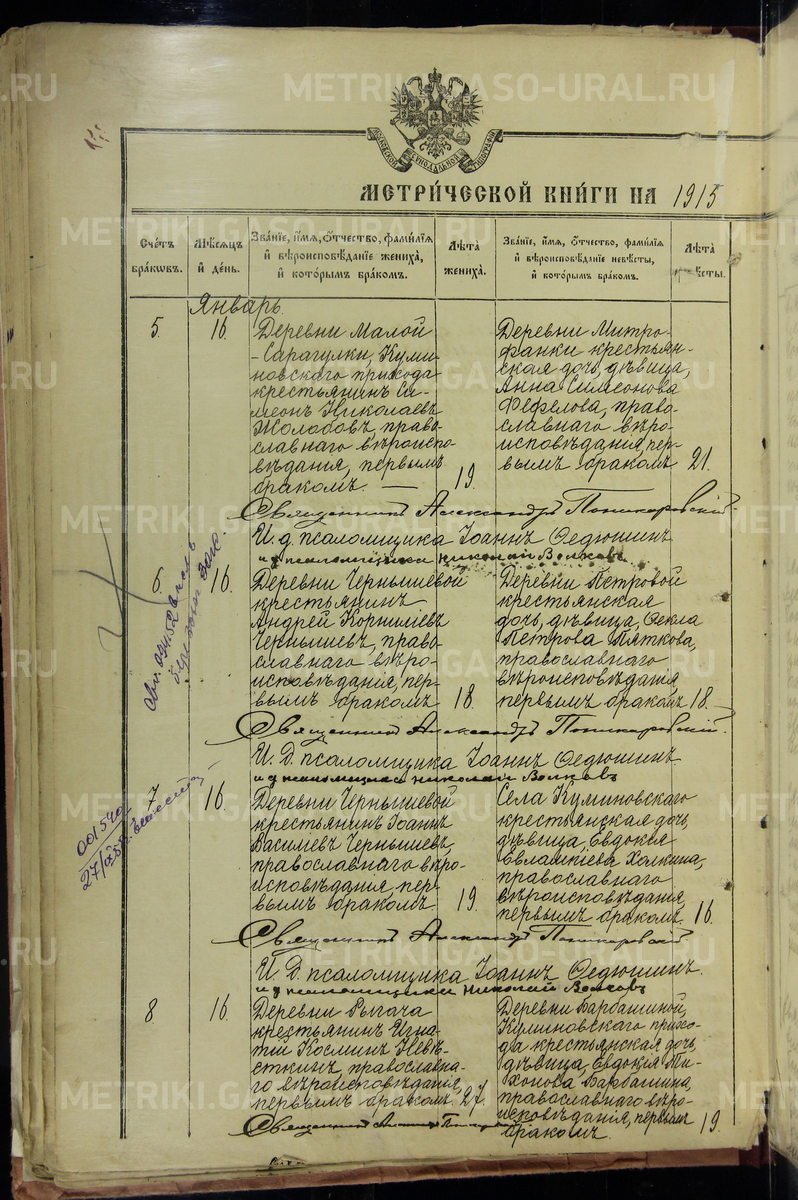 МОСКОВСКОЙ СѴНОДАЛЬНОЙ ТИПОГРАФІИ
МЕТРИ́ЧЕСКОЙ КНИ́ГИ НА 1915
Сче́тъ бра́кѡвъ.
Мѣ́сяцъ и҆ де́нь.
Зва́нїе, и҆́мѧ, о҆́тчество, фамѝлїѧ
и҆ вѣроисповѣ́данїе жениха̀,
и҆ кото́рымъ бра́комъ.
Лѣ́та жениха̀.
Зва́нїе, и҆́мѧ, о҆́тчество, фамѝлїѧ
и҆ вѣроисповѣ́данїе невѣ́сты,
и҆ кото́рымъ бра́комъ.
Лѣ́та невѣ́сты.
Январь.
5. 16.
Деревни Малой
-Сарагулки, Кули-
новскаго прихода
крестьянинъ Си-
меонъ Николаевъ
Жолобовъ, право-
славнаго вѣроиспо-
вѣданія, первымъ
бракомъ. — 19.
Деревни Митро-
фанки крестьян-
ская дочь, дѣвица,
Анна Симеонова
Фефелова, право-
славнаго вѣро-
исповѣданія, пер-
вымъ бракомъ 21.
Священникъ Александръ Поникаровскій.
И. д. псаломщика Іоаннъ Ѳедюшинъ
и д псаломщика Николай Волковъ
6 16.
Деревни Чернышевой
крестьянинъ
Андрей Корниліевъ
Чернышевъ, право-
славнаго вѣро-
исповѣданія, пер-
вымъ бракомъ 18.
Деревни Петровой
крестьянская
дочь, дѣвица, Ѳекла
Петрова Пяткова,
православнаго
вѣроисповѣданія,
первымъ бракомъ 18.
Священникъ Александръ Поникаровскій.
И. Д. псаломщика Іоаннъ Ѳедюшинъ.
и д псаломщика Николай Волковъ
001540
7 16.
Деревни Чернышевой
крестьянинъ Іоаннъ
Василіевъ Чернышевъ,
православнаго вѣро-
исповѣданія, пер-
вымъ бракомъ 19.
Села Кулиновскаго
крестьянская дочь,
дѣвица, Евдокія
Евлампіева Холкина,
православнаго
вѣроисповѣданія,
первымъ бракомъ. 16.
Священникъ Александръ Поникаровскій
И. Д. псаломщика Іоаннъ Ѳедюшинъ.
и д псаломщика Николай Волковъ
8 16.
Деревни Рычага
крестьянинъ Игна-
тій Косминъ Невѣ-
сткинъ, православна-
го вѣроисповѣданія,
первымъ бракомъ. 27.
Деревни Барбашиной,
Кулиновскаго прихо-
да крестьянская дочь,
дѣвица, Евдокія Ти-
хонова Барбашина,
православнаго вѣро-
исповѣданія, первымъ
бракомъ. 19.
Священникъ
METRIKI.GASO-URAL.RU